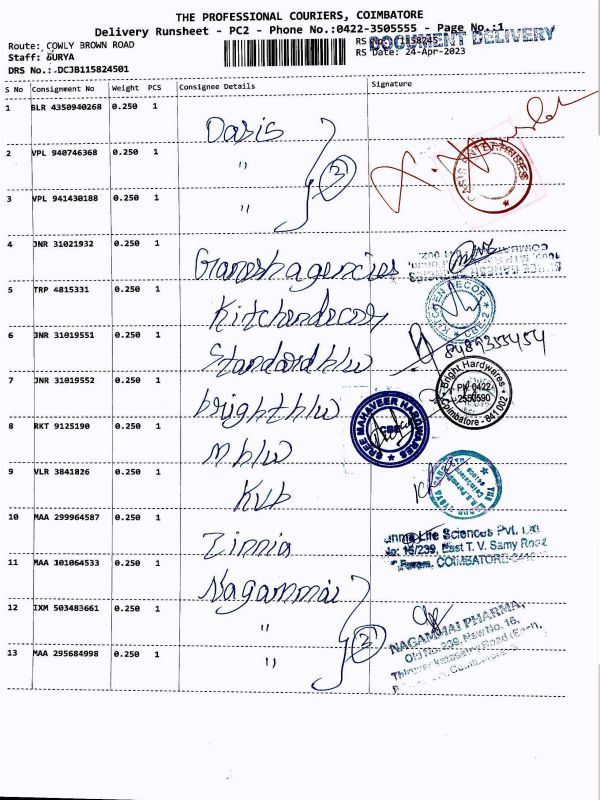 THE PROFESSIONAL COURIERS, COIMBATORE
Delivery Runsheet - PC2 - Phone No.:0422-3505555 - Page No.:1
DOCUMENT DELIVERY
Route: COWLY BROWN ROAD
RS No.: 1158245
Staff: SURYA
RS Date: 24-Apr-2023
DRS No.:.DCJB115824501
S No Consignment No Weight PCS Consignee Details Signature
1 BLR 4350940268 0.250 1 Oasis
2 VPL 940746368 0.250 1 "
3 VPL 941430188 0.250 1 "
3
OASIS ENTERPRISES
4 JNR 31021932 0.250 1 Ganesh agencies
5 TRP 4815331 0.250 1 Kitchendecor
KITCHEN DECOR
CBE-2
6 JNR 31019551 0.250 1 Standard h/w
8489355454
7 JNR 31019552 0.250 1 bright h/w
Bright Hardwares
PH 0422
2550590
Coimbatore - 641 002
8 RKT 9125190 0.250 1 m h/w
SREE MAHAVEER HARDWARES
CBE
9 VLR 3841826 0.250 1 Kvb
10 MAA 299964587 0.250 1 Zinnia
Life Sciences Pvt. Ltd
No: 15/239, East T. V. Samy Road
Puram, COIMBATORE-
11 MAA 101064533 0.250 1 Nagammai
12 IXM 503483661 0.250 1 "
13 MAA 295684998 0.250 1 "
3
NAGAMMAI PHARMA,
Old No. 239, New No. 16,
Road (East),